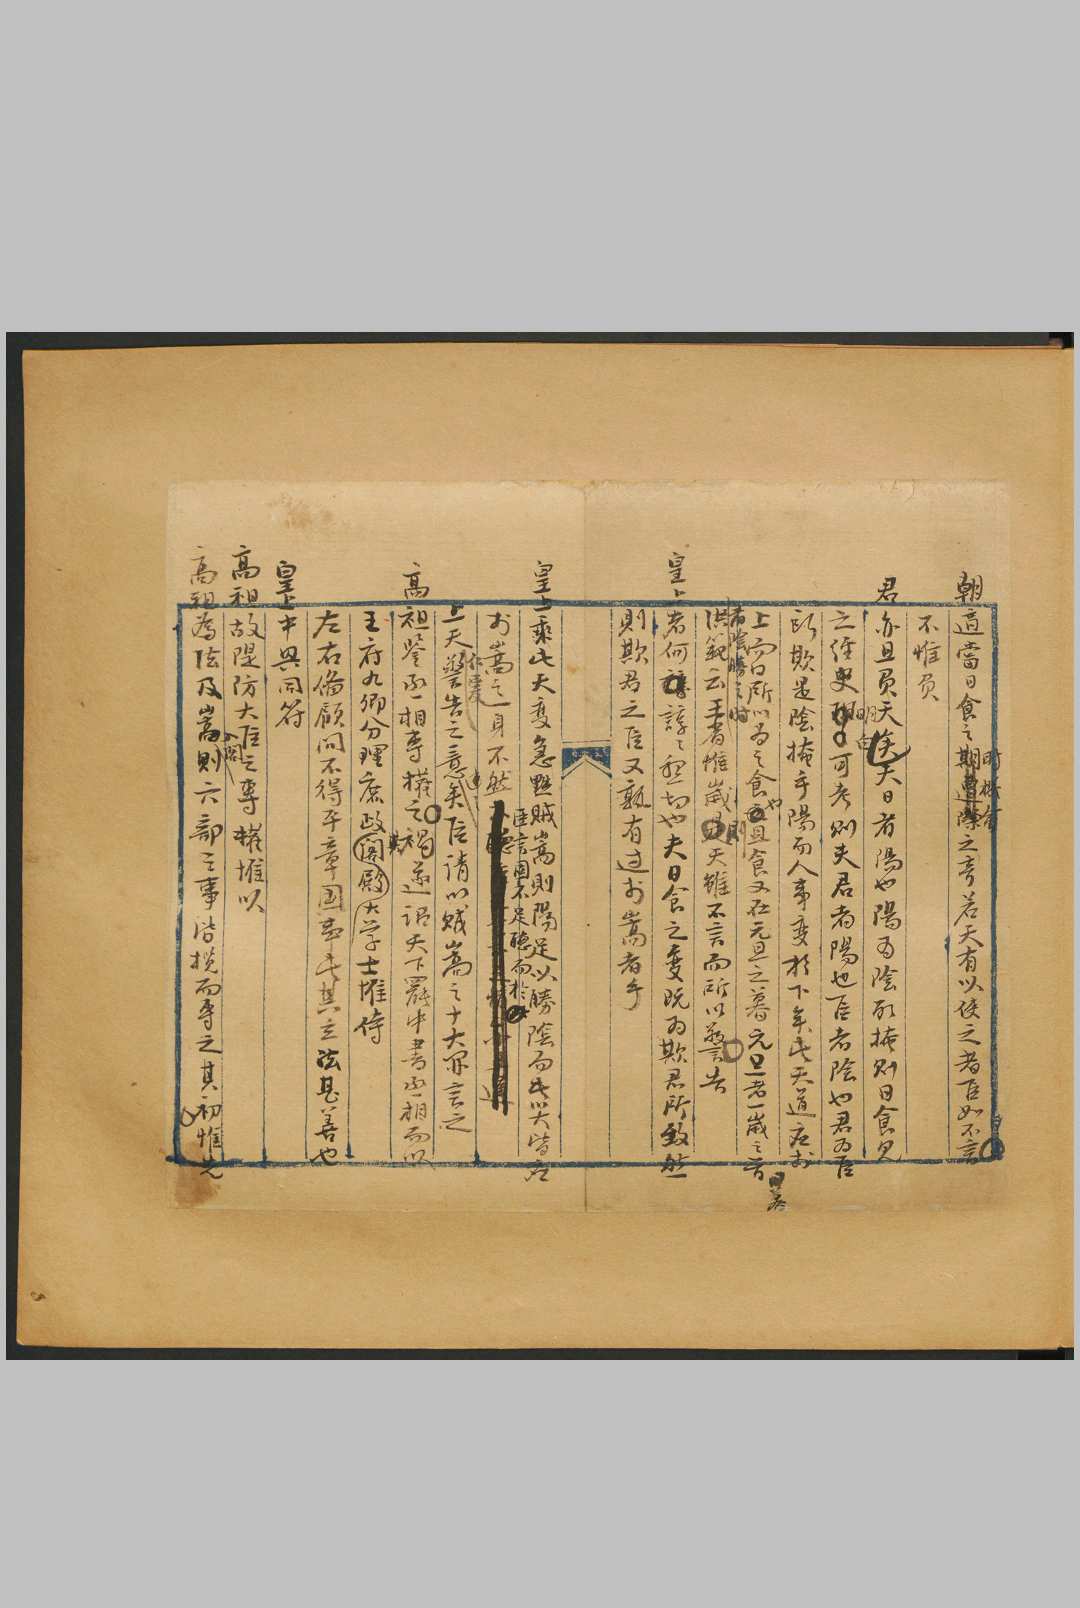 朝適當日食之期遭際之奇若天有以使之者臣如不言
時機會
不惟負
君亦且負天矣夫日者陽也陽為陰所掩則日食見
之經史明白可考則夫君者陽也臣者陰也君為臣
所欺是陰掩乎陽而人事變於下矣此天道應於
上而日所以為之食也且食又在元旦之暮元旦者一歲之首
者陰勝之時
洪範云王者惟歲則天雖不言而所以警告
皇上者何諄諄懇切也夫日食之變既為欺君所致然
則欺君之臣又孰有過於嵩者乎
皇上乘此天變急黜賊嵩則陽足以勝陰而此大皆應
臣言固不足聽而於
於嵩之一身不然
上天仁愛警告之意矣臣請以賊嵩之十大罪言之
高祖鑒丞相專權之禍遂詔天下罷中書丞相而以
五府九卿分理庶政閣殿大學士惟侍
左右備顧問不得平章國事此其立法甚善也
皇上中興同符
高祖故隄防大臣之專權惟以
高祖為法及嵩入閣則六部之事皆攬而專之其初惟先